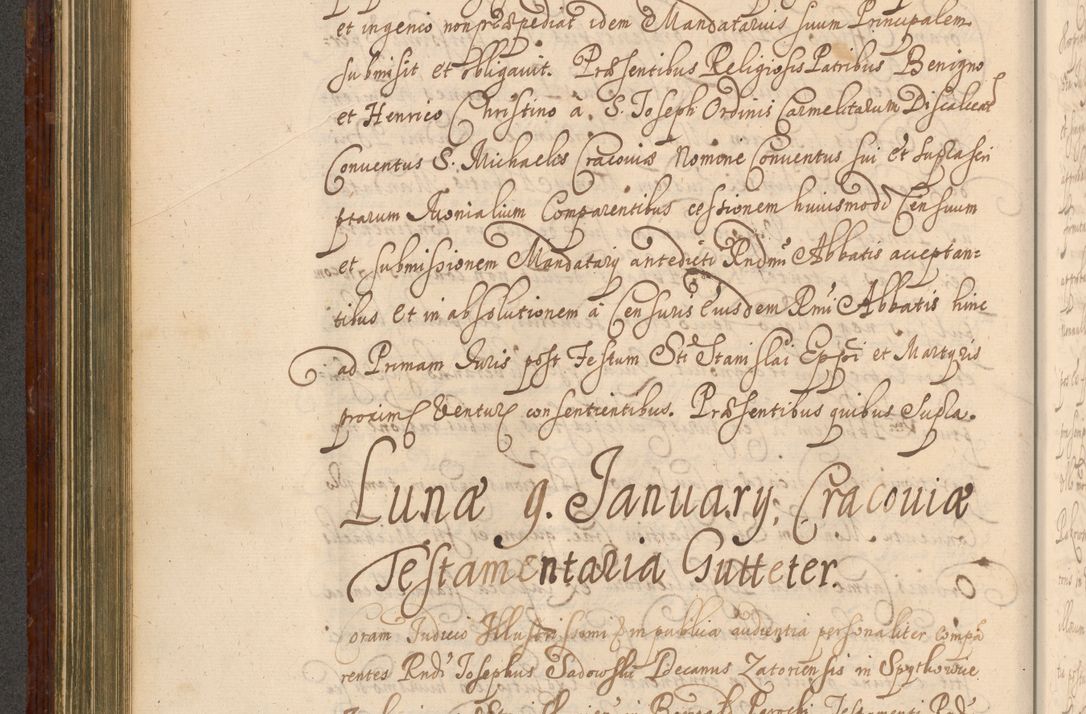 et ingenio non præpediat idem Mandatarius suum Principalem
submisit et obligauit. Præsentibus Religiosis Patribus Benigno
et Henrico Christino à S. Joseph Ordinis Carmelitarum Discalceat
Conuentus S. Michaelis Cracouiæ Nomine Conuentus sui et suprascri
ptarum Monialium Comparentibus cessionem huiusmodi Censuum
et submissionem Mandatarÿ antedicti Rndmi Abbatis acceptan=
tibus et in absolutionem à Censuris Eiusdem Rmi Abbatis hinc
ad Primam Juris post Festum Sti Stanislai Eppi et Martyris
proxime Venturæ consentientibus. Præsentibus quibus Supra.
Lunæ 9. Januarÿ, Cracouiæ
Testamentaria Gutteter.
Coram Judicio Illustrissimi & in publica audientia personaliter compa
rentes Rndi Josephus Sadowski Decanus Zatoriensis in Spythowice